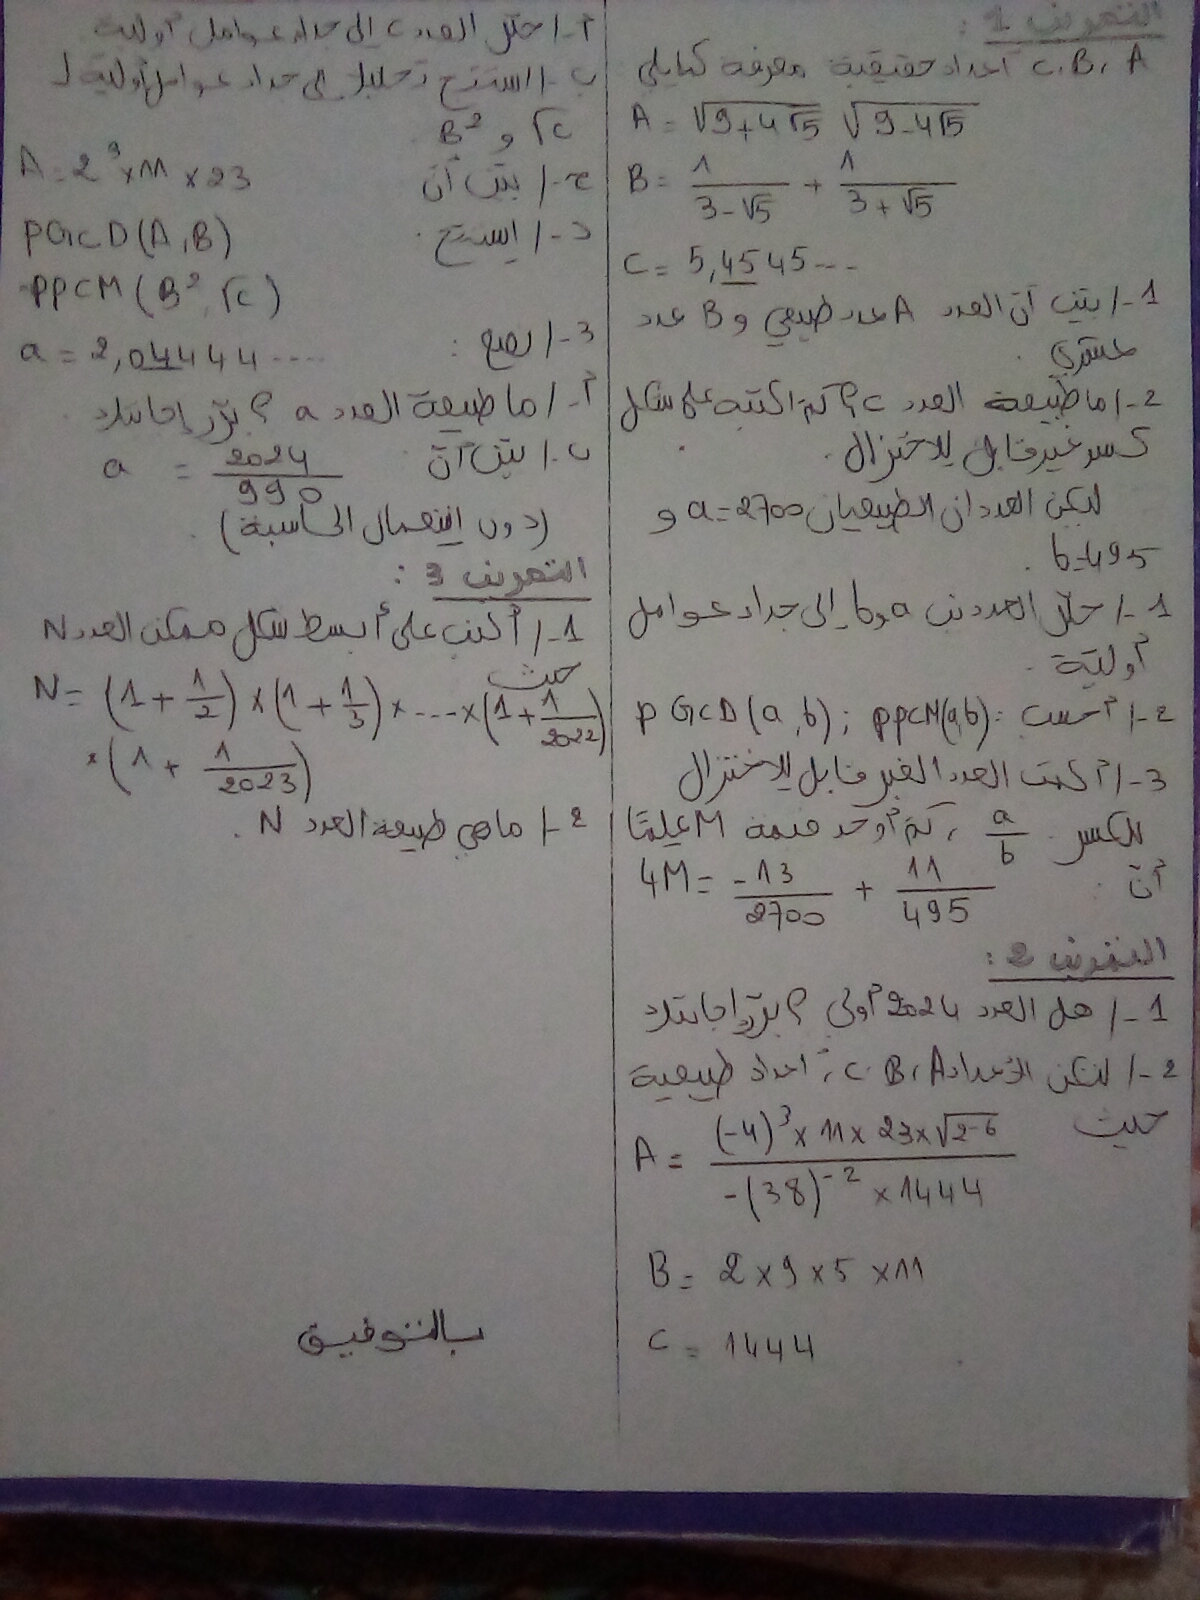 التمرين 1 :
A ، B ، C أعداد حقيقية معرفة كمايلي
A = √(9+4√5) √(9-4√5)
B = 1/(3-√5) + 1/(3+√5)
C = 5,4545...
1-/ بيّن أنّ العدد A عدد طبيعي و B عدد
عشري .
2-/ ما طبيعة العدد C ؟ ثمّ اكتبه على شكل
كسر غير قابل للاختزال .
ليكن العددان الطبيعيان a=2700 و
b=495 .
1-/ حلّل العددين a و b إلى جداء عوامل
أولية .
2-/ أحسب : PGCD(a,b) ; PPCM(a,b)
3-/ أكتب العدد الغير قابل للاختزال
للكسر a/b ، ثمّ أوجد قيمة M علمًا
أنّ : 4M = -13/2700 + 11/495
التمرين 2 :
1-/ هل العدد 2024 أولي ؟ برّر إجابتك
2-/ لتكن الأعداد A ، B ، C أعداد طبيعية
حيث
A = ((-4)³ × 11 × 23 × √2-6) / (-(38)⁻² × 1444)
B = 2 × 9 × 5 × 11
C = 1444
أ-/ حلّل العدد C إلى جداء عوامل أولية
ب-/ استنتج تحليل إلى جداء عوامل أولية لـ
B² و √C
ج-/ بيّن أنّ A = 2⁹ × 11 × 23
د-/ استنتج . PGCD(A,B)
PPCM(B²,√C)
3-/ نضع : a = 2,04444....
أ-/ ما طبيعة العدد a ؟ برّر إجابتك .
ب-/ بيّن أنّ a = 2024/990
(دون استعمال الحاسبة) .
التمرين 3 :
1-/ أكتب على أبسط شكل ممكن العدد N
حيث
N = (1 + 1/2) × (1 + 1/3) × .... × (1 + 1/2022)
× (1 + 1/2023)
2-/ ماهي طبيعة العدد N .
بالتوفيق